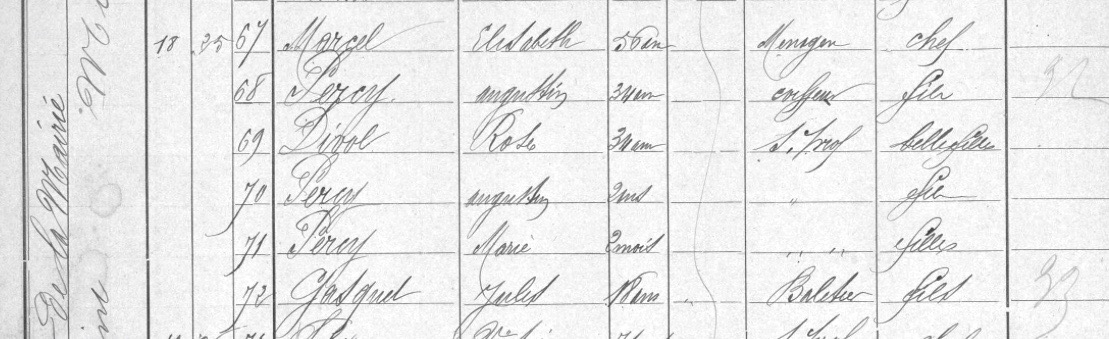 De la Mairie
18 35 67 Marcel Elisabeth 56 an Menagen chef
68 Percy. augustin 34 an coiffeur fils 32
69 Divol Rose 34 am S. Prof belle fille
70 Percy augustin 2ans " fils
71 Percy Marie 2 mois " " filles
72 Gasquet Jules 18 ans " fils 33